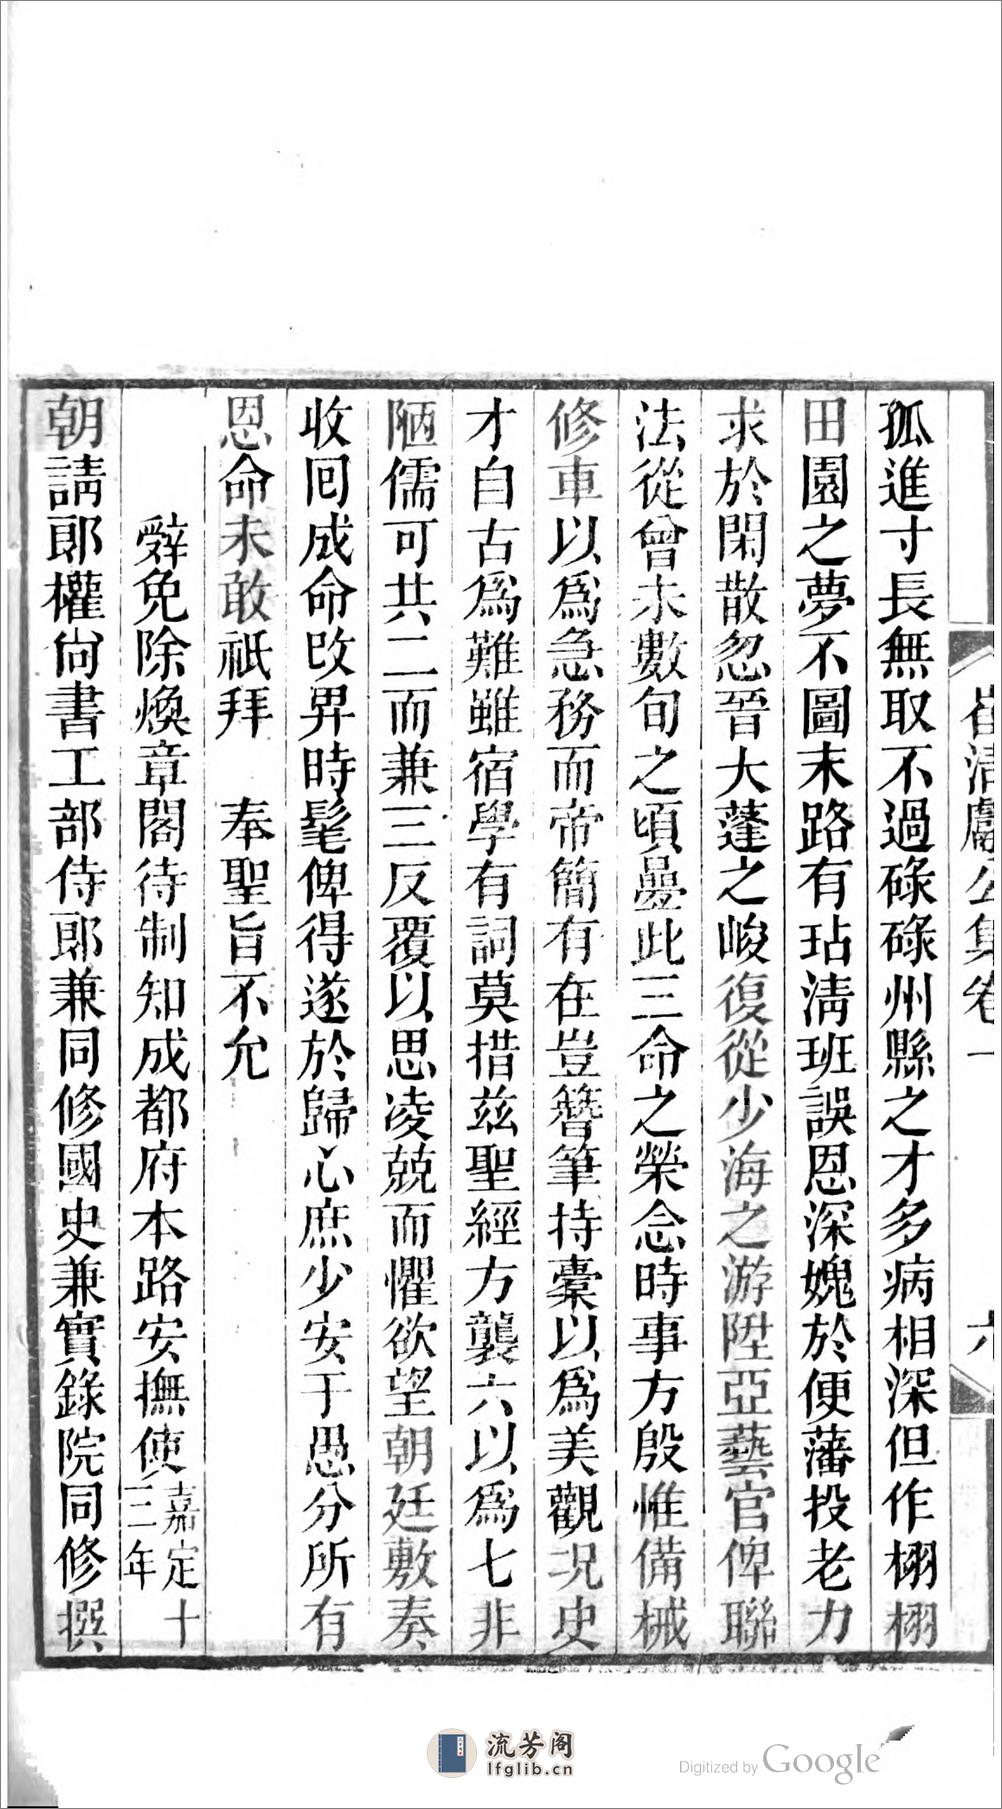 崔清獻公集卷一
六
孤進寸長無取不過碌碌州縣之才多病相深但作栩栩
田園之夢不圖末路有玷淸班誤恩深媿於便藩投老力
求於閑散忽晉大蓬之峻復從少海之游陞亞藝官俾聯
法從曾未數旬之頃曡此三命之榮念時事方殷惟備械
修車以爲急務而帝簡有在豈簪筆持橐以爲美觀況史
才自古爲難雖宿學有詞莫措兹聖經方襲六以爲七非
陋儒可共二而兼三反覆以思凌兢而懼欲望朝廷敷奏
收囘成命改畀時髦俾得遂於歸心庶少安于愚分所有
恩命未敢祇拜 奉聖旨不允
辭免除煥章閣待制知成都府本路安撫使嘉定十三年
朝請郎權尙書工部侍郎兼同修國史兼實錄院同修撰
流芳阁
lfglib.cn
Digitized by Google